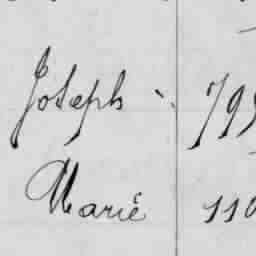 Joseph 799
Marie 110